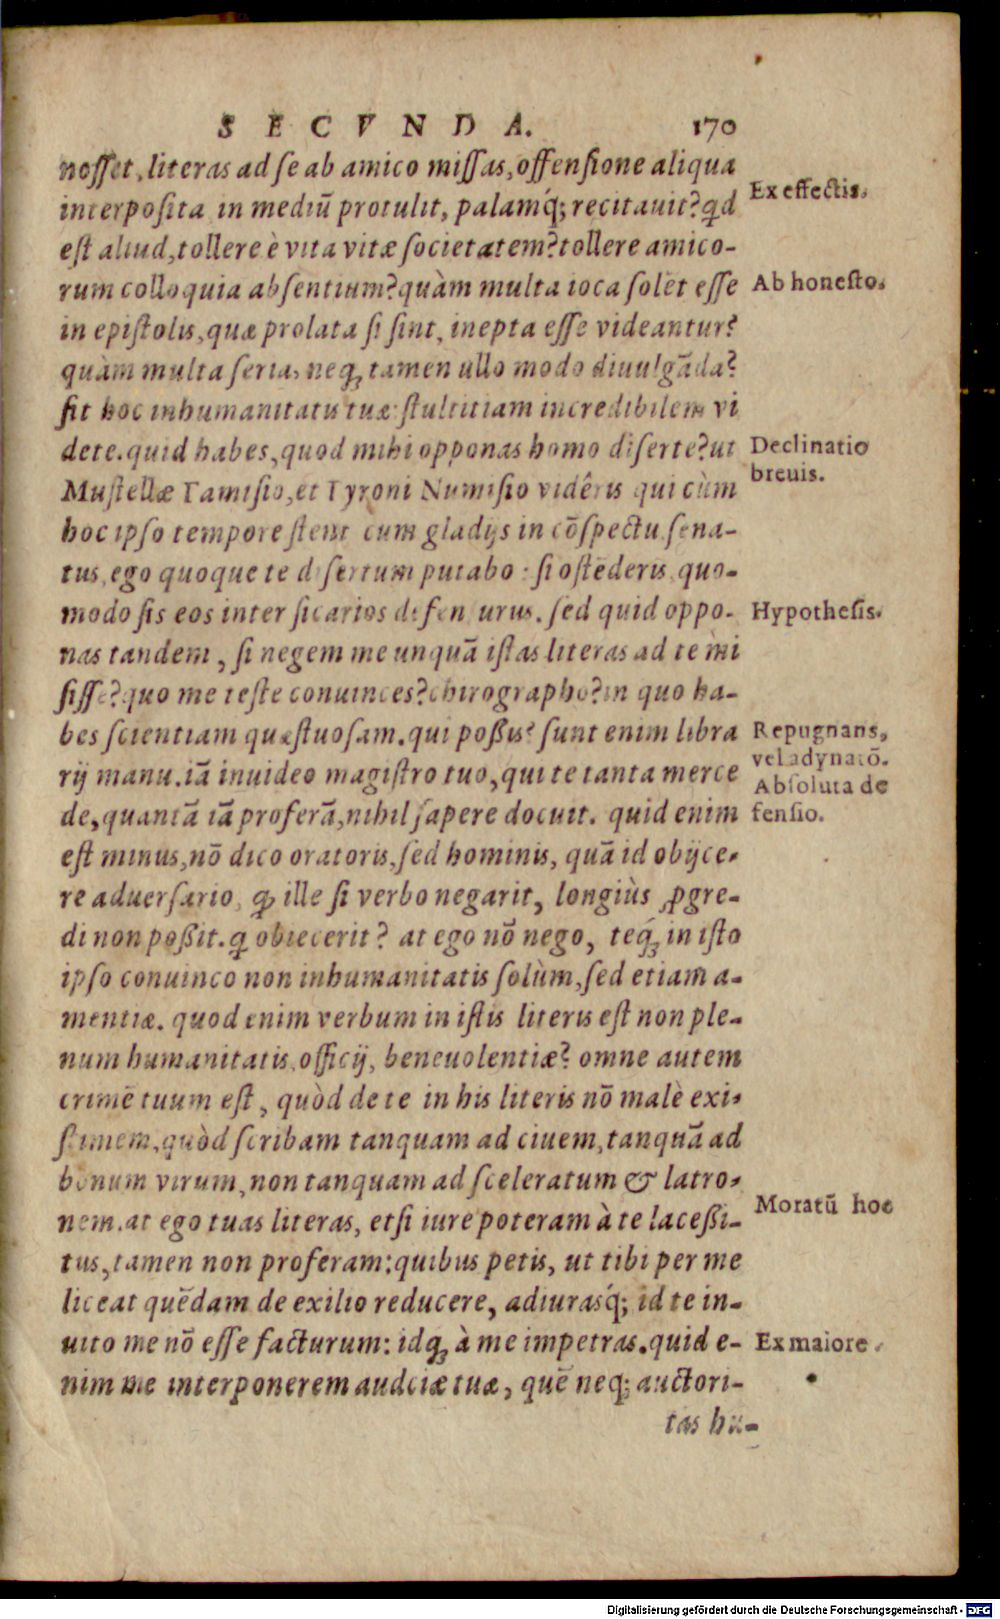 SECVNDA. 170
nosset, literas ad se ab amico missas, offensione aliqua
interposita in mediū protulit, palamq́; recitauit? qd
Ex effectis.
est aliud, tollere è vita vitæ societatem? tollere amico-
rum colloquia absentium? quàm multa ioca solēt esse
Ab honesto.
in epistolis, quæ prolata si sint, inepta esse videantur?
quàm multa seria, neq; tamen ullo modo diuulgāda?
sit hoc inhumanitatis tuæ: stultitiam incredibilem vi
dete. quid habes, quod mihi opponas homo diserte? ut
Declinatio
breuis.
Mustellæ Tamisio, et Tyroni Numisio vidêris qui cùm
hoc ipso tempore stent cum gladijs in cōspectu sena-
tus, ego quoque te disertum putabo: si ostēderis quo-
modo sis eos inter sicarios defensurus. sed quid oppo-
Hypothesis.
nas tandem, si negem me unquā istas literas ad te mi
sisse? quo me teste conuinces? chirographo? in quo ha-
bes scientiam quæstuosam. qui poßis? sunt enim libra
Repugnans,
vel adynatō.
rij manu. iā inuideo magistro tuo, qui te tanta merce
Absoluta de
fensio.
de, quantā iā proferā, nihil sapere docuit. quid enim
est minus, nō dico oratoris, sed hominis, quā id obijce-
re aduersario, qp ille si verbo negarit, longiùs ꝓgre-
di non poßit. q obiecerit? at ego nō nego, teq́; in isto
ipso conuinco non inhumanitatis solùm, sed etiam a-
mentiæ. quod enim verbum in istis literis est non ple-
num humanitatis, officij, beneuolentiæ? omne autem
crimē tuum est, quòd de te in his literis nō malè exi-
stimem, quòd scribam tanquam ad ciuem, tanquā ad
bonum virum, non tanquam ad sceleratum & latro-
nem. at ego tuas literas, etsi iure poteram à te laceßi-
Moratū hoc
tus, tamen non proferam: quibus petis, ut tibi per me
liceat quēdam de exilio reducere, adiurasq́; id te in-
uito me nō esse facturum: idq; à me impetras. quid e-
Ex maiore.
nim me interponerem audciæ tuæ, quē neq; auctori-
tas hu-
Digitalisierung gefördert durch die Deutsche Forschungsgemeinschaft - DFG